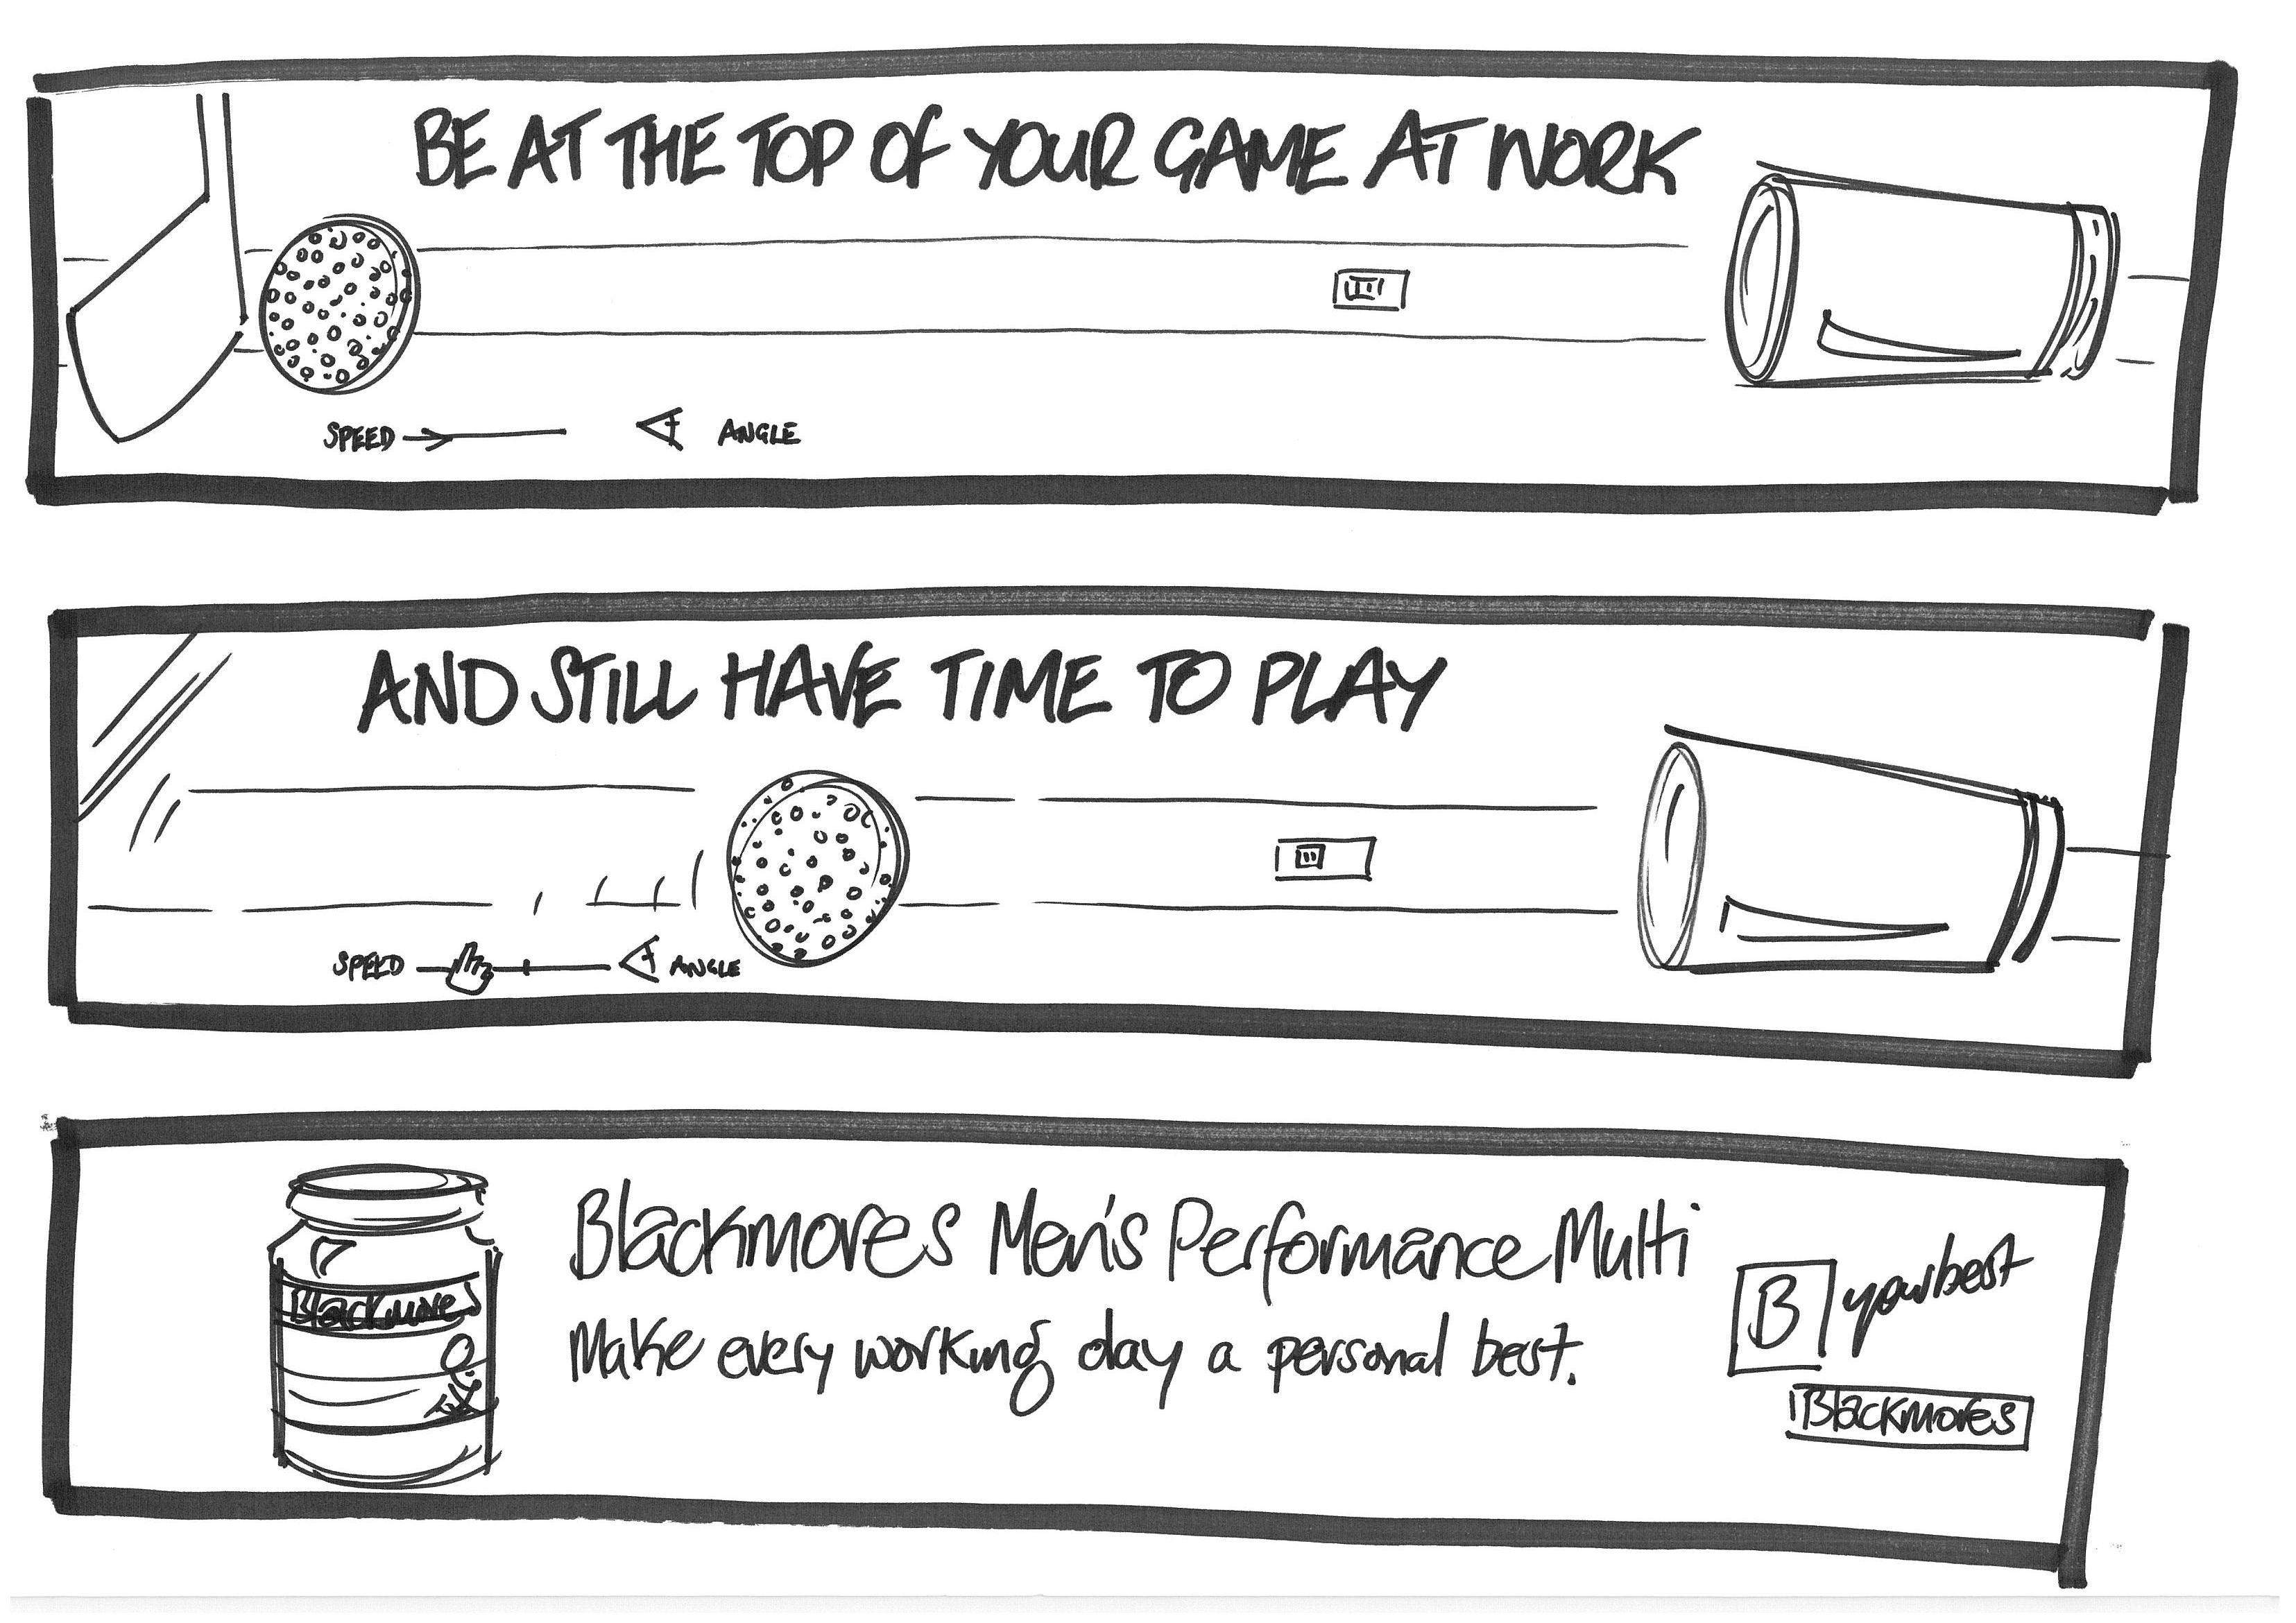 BE AT THE TOP OF YOUR GAME AT WORK
SPEED
ANGLE
AND STILL HAVE TIME TO PLAY
SPEED
ANGLE
Blackmores
Blackmores Men's Performance Multi
Make every working day a personal best.
B your best
Blackmores